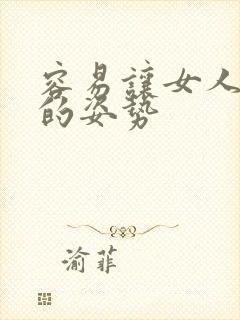 容易讓女人
的姿势
渝菲